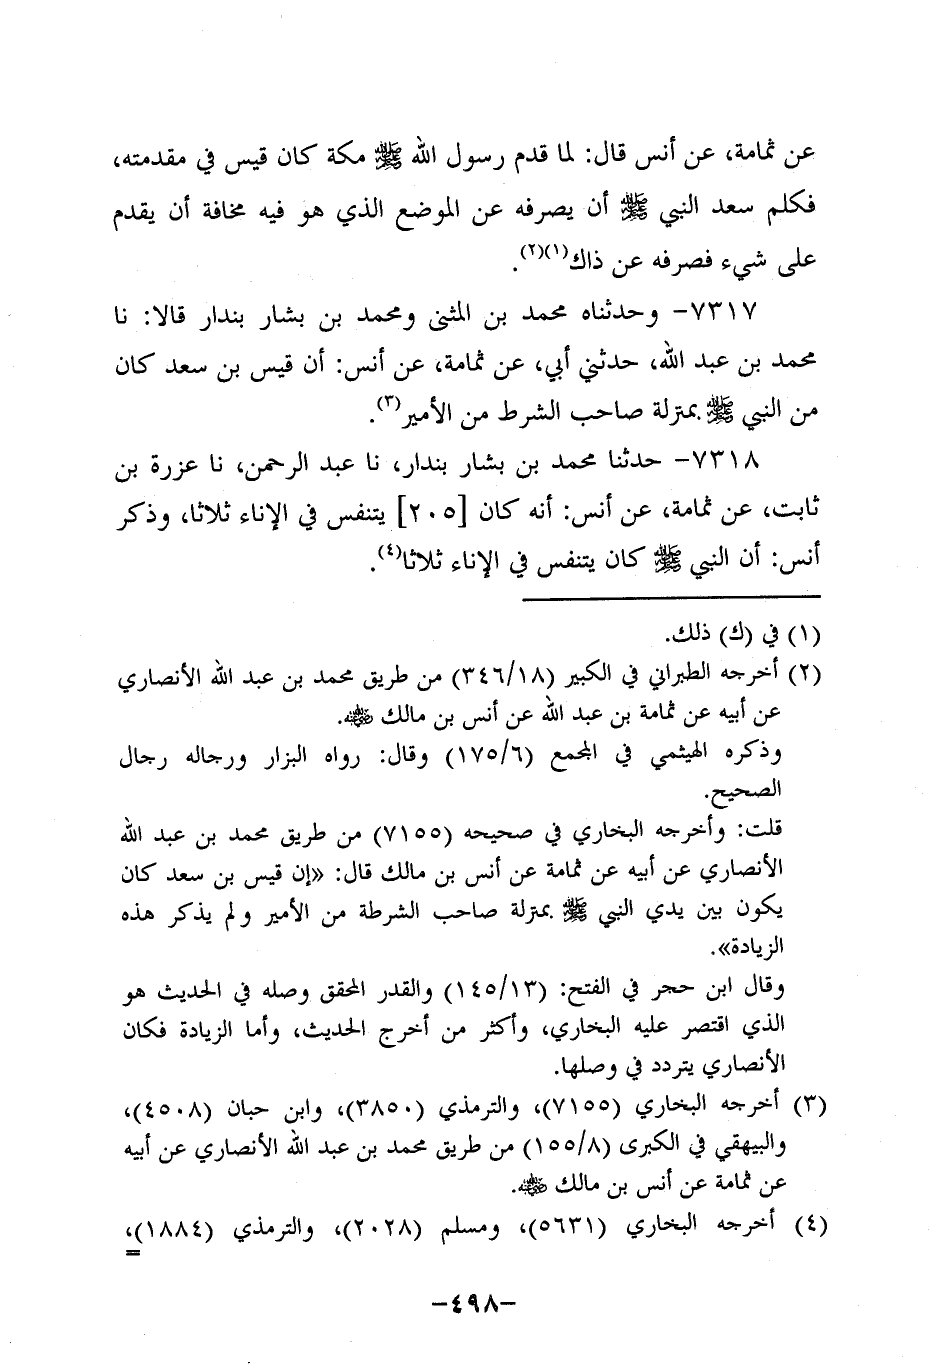 عن ثمامة، عن أنس قال: لما قدم رسول الله ﷺ مكة كان قيس في مقدمته،
فكلم سعد النبي ﷺ أن يصرفه عن الموضع الذي هو فيه مخافة أن يقدم
على شيء فصرفه عن ذاك(١)(٢).
٧٣١٧- وحدثناه محمد بن المثنى ومحمد بن بشار بندار قالا: نا
محمد بن عبد الله، حدثني أبي، عن ثمامة، عن أنس: أن قيس بن سعد كان
من النبي ﷺ بمنزلة صاحب الشرط من الأمير(٣).
٧٣١٨- حدثنا محمد بن بشار بندار، نا عبد الرحمن، نا عزرة بن
ثابت، عن ثمامة، عن أنس: أنه كان [٢٠٥] يتنفس في الإناء ثلاثا، وذكر
أنس: أن النبي ﷺ كان يتنفس في الإناء ثلاثا(٤).
(١) في (ك) ذلك.
(٢) أخرجه الطبراني في الكبير (٣٤٦/١٨) من طريق محمد بن عبد الله الأنصاري
عن أبيه عن ثمامة بن عبد الله عن أنس بن مالك ﵁.
وذكره الهيثمي في المجمع (١٧٥/٦) وقال: رواه البزار ورجاله رجال
الصحيح.
قلت: وأخرجه البخاري في صحيحه (٧١٥٥) من طريق محمد بن عبد الله
الأنصاري عن أبيه عن ثمامة عن أنس بن مالك قال: «إن قيس بن سعد كان
يكون بين يدي النبي ﷺ بمنزلة صاحب الشرطة من الأمير ولم يذكر هذه
الزيادة».
وقال ابن حجر في الفتح: (١٤٥/١٣) والقدر المحقق وصله في الحديث هو
الذي اقتصر عليه البخاري، وأكثر من أخرج الحديث، وأما الزيادة فكان
الأنصاري يتردد في وصلها.
(٣) أخرجه البخاري (٧١٥٥)، والترمذي (٣٨٥٠)، وابن حبان (٤٥٠٨)،
والبيهقي في الكبرى (١٥٥/٨) من طريق محمد بن عبد الله الأنصاري عن أبيه
عن ثمامة عن أنس بن مالك ﵁.
(٤) أخرجه البخاري (٥٦٣١)، ومسلم (٢٠٢٨)، والترمذي (١٨٨٤)،
=
-٤٩٨-